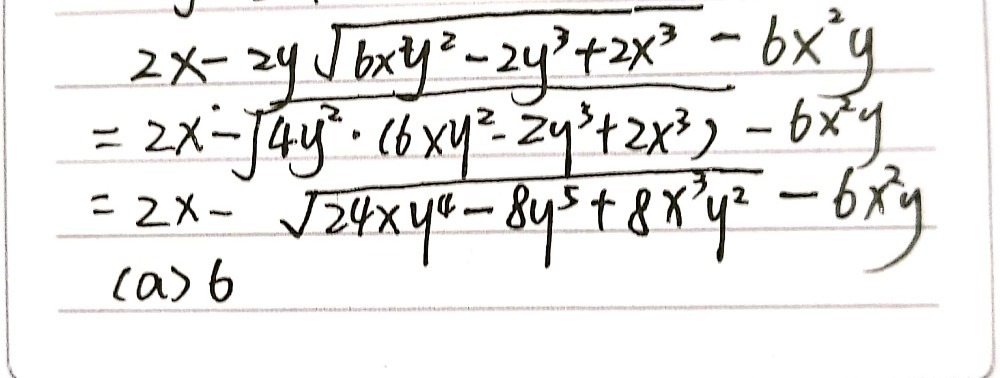 2x - 2y√(6xy² - 2y³ + 2x³) - 6x²y
= 2x - √(4y² · (6xy² - 2y³ + 2x³)) - 6x²y
= 2x - √(24xy⁴ - 8y⁵ + 8x³y²) - 6x²y
(a) 6